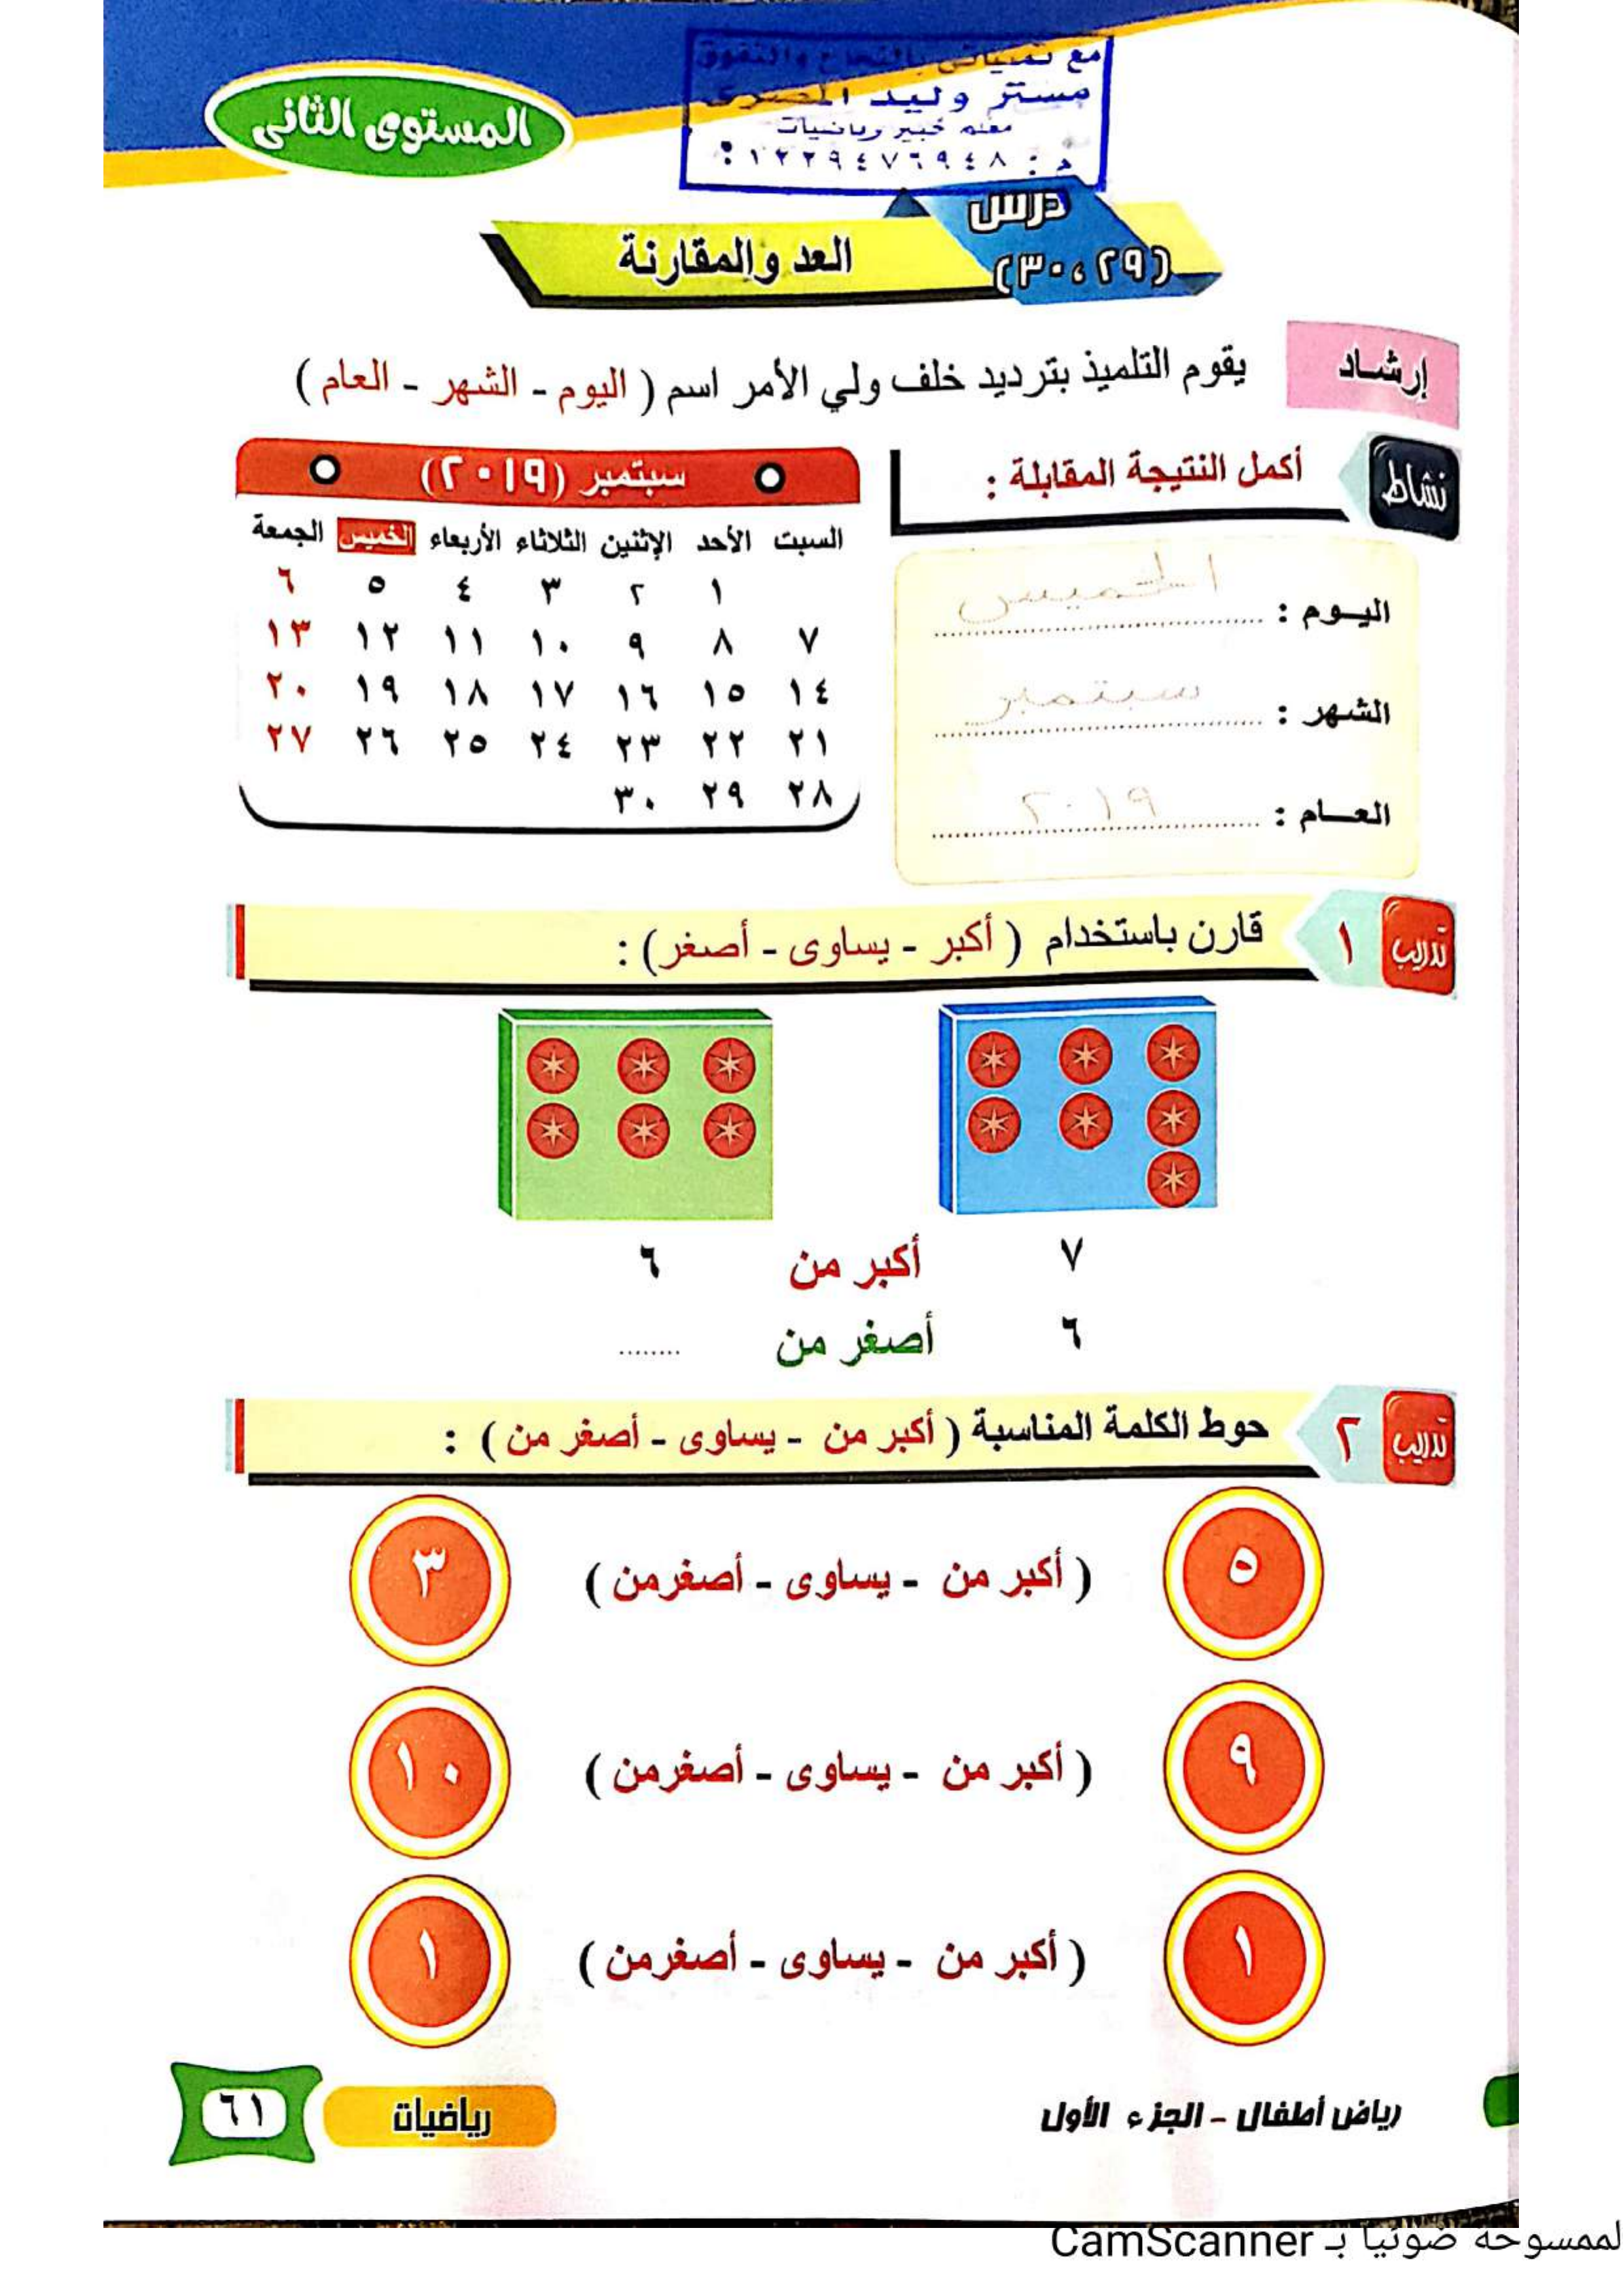 مع تمنياتى بالنجاح والتفوق
مستر وليد المصرى
معلم خبير رياضيات
م : ٠١٢٢٩٤٧٦٩٤٨
المستوى الثانى
درس
(٢٩ ، ٣٠)
العد والمقارنة
إرشاد
يقوم التلميذ بترديد خلف ولي الأمر اسم ( اليوم - الشهر - العام )
نشاط
أكمل النتيجة المقابلة :
اليوم : الخميس
الشهر : سبتمبر
العام : ٢٠١٩
سبتمبر (٢٠١٩)
السبت الأحد الإثنين الثلاثاء الأربعاء الخميس الجمعة
١ ٢ ٣ ٤ ٥ ٦
٧ ٨ ٩ ١٠ ١١ ١٢ ١٣
١٤ ١٥ ١٦ ١٧ ١٨ ١٩ ٢٠
٢١ ٢٢ ٢٣ ٢٤ ٢٥ ٢٦ ٢٧
٢٨ ٢٩ ٣٠
تدريب ١ قارن باستخدام ( أكبر - يساوى - أصغر) :
٧ أكبر من ٦
٦ أصغر من ........
تدريب ٢ حوط الكلمة المناسبة ( أكبر من - يساوى - أصغر من ) :
٥ ( أكبر من - يساوى - أصغرمن ) ٣
٩ ( أكبر من - يساوى - أصغرمن ) ١٠
١ ( أكبر من - يساوى - أصغرمن ) ١
رياض أطفال - الجزء الأول
رياضيات
٦١
لممسوحة ضوئيا بـ CamScanner